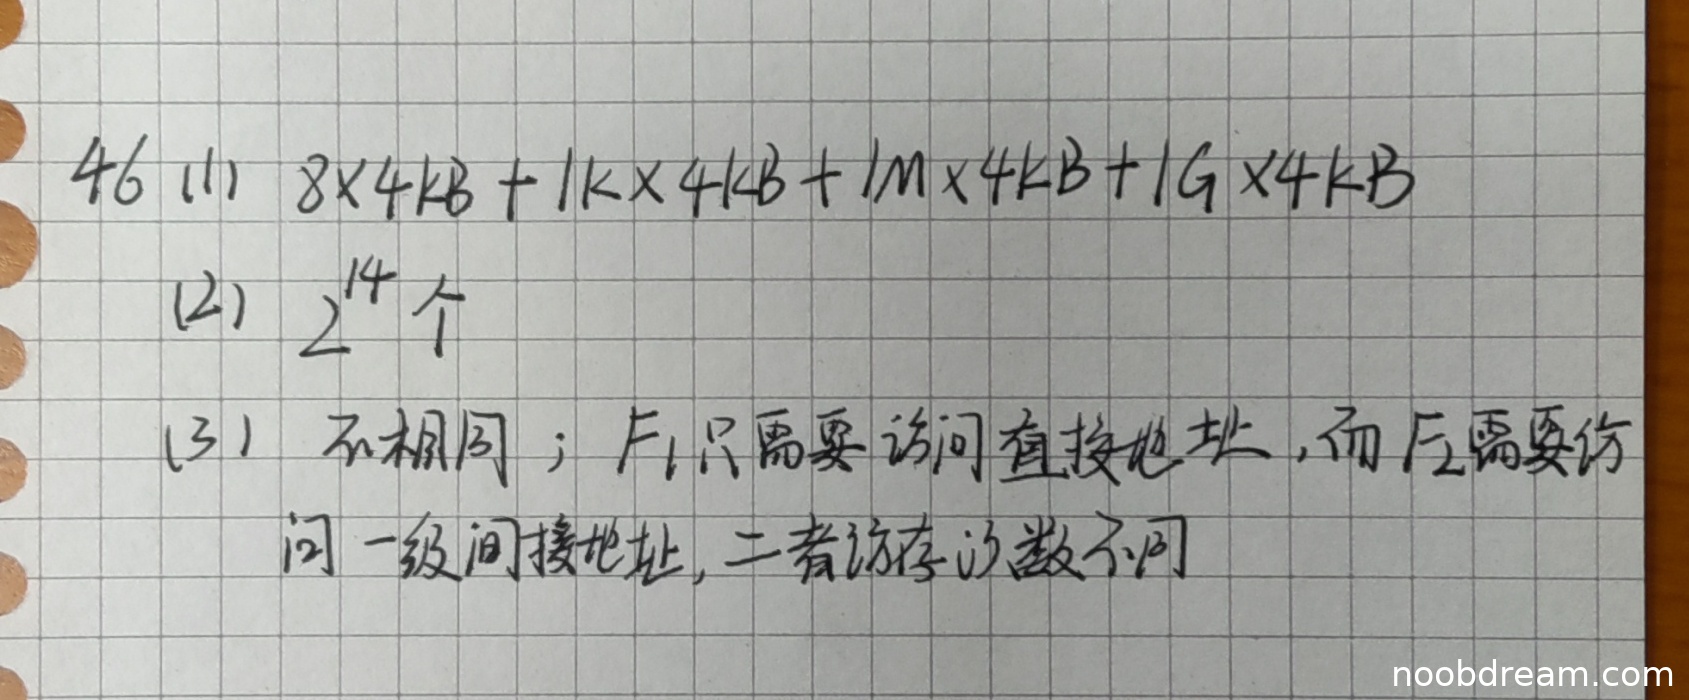 46 (1) 8×4kB+1K×4kB+1M×4kB+1G×4kB
(2) 2^14 个
(3) 不相同；F1只需要访问直接地址，而F2需要访
问一级间接地址，二者访存次数不同
noobdream.com